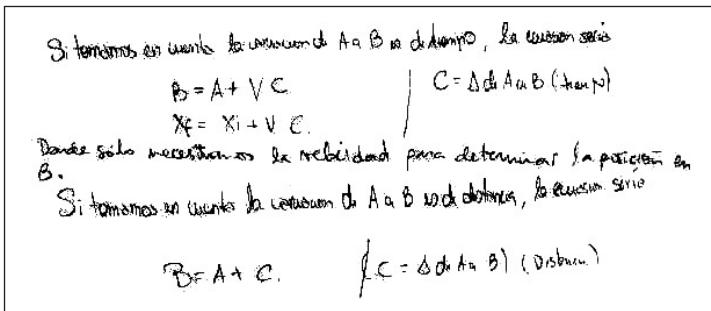 Si tomamos en cuenta la variacion d A a B es de tiempo, la ecuacion seria
B = A + V C C = Δ de A a B (tiempo)
Xf = Xi + V C.
Donde sólo necesitamos la velocidad para determinar la posición en
B.
Si tomamos en cuenta la variacion de A a B es de distancia, la ecuacion seria
B = A + C. (C = Δ de A a B) (Distancia)